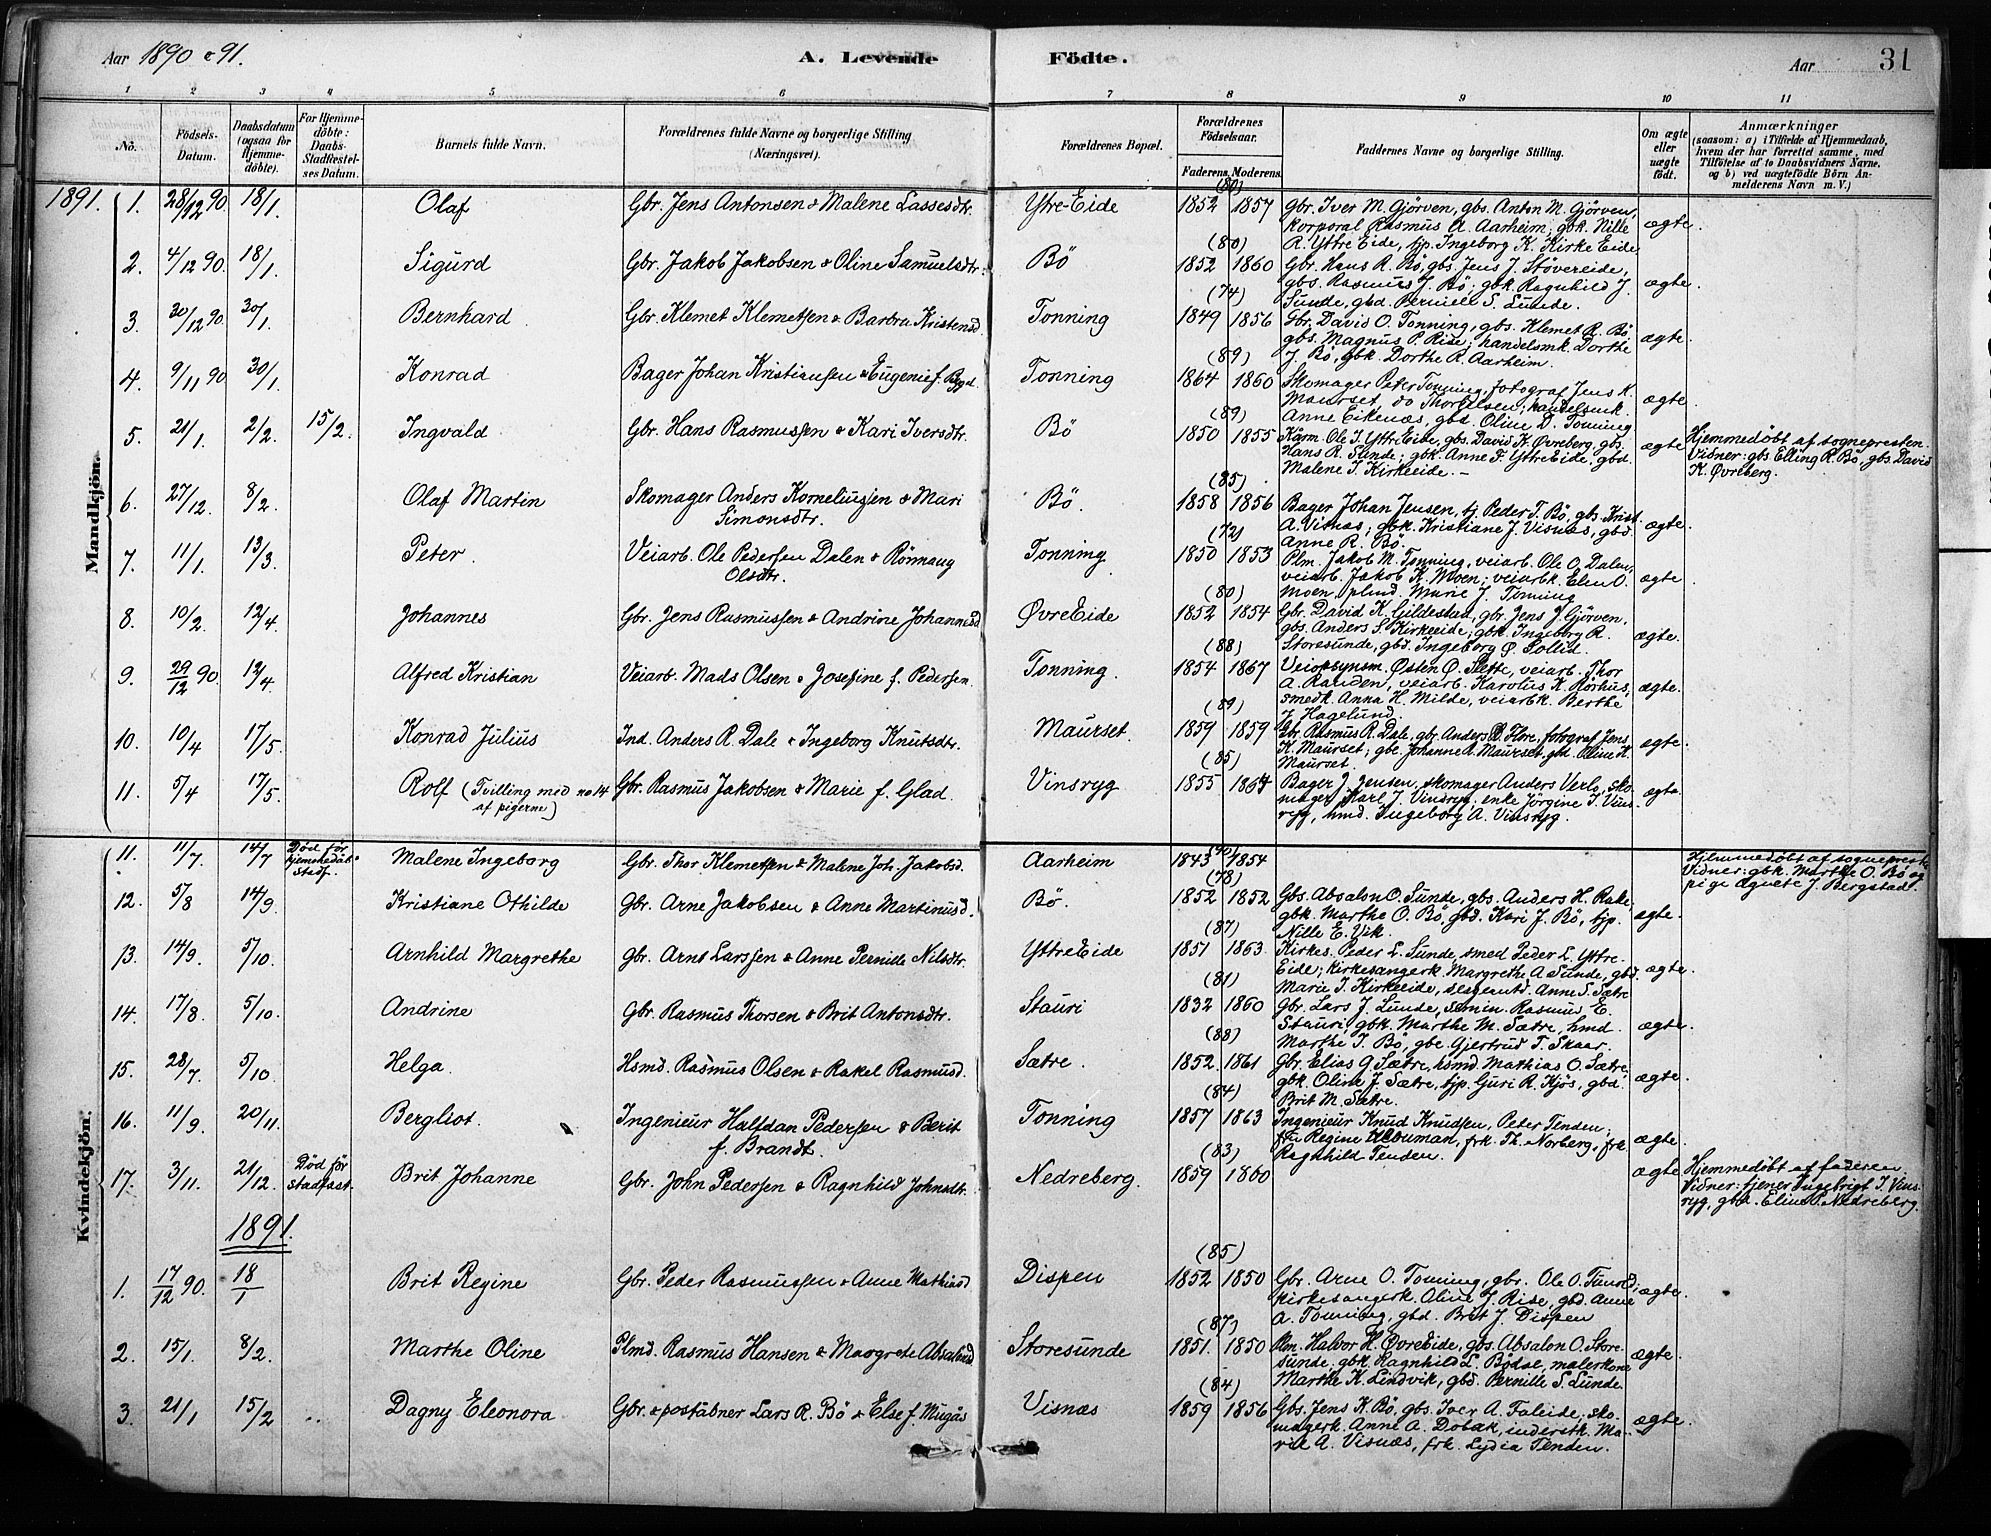 Aar 1890 & 91.
A. Levende Födte.
Aar 31
1 2 3 4 5 6 7 8 9 10 11
No.
Födsels-Datum.
Daabsdatum (ogsaa for Hjemme-döbte).
For Hjemme-döbte: Daabs-Stadfæstelses Datum.
Barnets fulde Navn.
Forældrenes fulde Navne og borgerlige Stilling (Næringsvei).
Forældrenes Bopæl.
Forældrenes Födselsaar.
Faderens. Moderens.
Faddernes Navne og borgerlige Stilling.
Om ægte eller uægte födt.
Anmærkninger
(saasom: a) i Tilfælde af Hjemmedaab, hvem der har forrettet samme, med Tilföielse af to Daabsvidners Navne, og b) ved uægtefödte Börn Anmelderens Navn m. V.)
Mandkjön.
1891. 1. 28/12 90. 18/1. Olaf Gbr. Jens Antonsen & Malene Lassesdtr. Ytre-Eide (80) 1852 1857 Gbr. Iver M. Gjörven, gbs. Anton M. Gjörven,
korporal Rasmus A. Aarheim; gbk. Nille
R. Yttre Eide, tjp. Ingeborg K. Kirke Eide ægte.
2. 4/12 90. 18/1. Sigurd Gbr. Jakob Jakobsen & Oline Samuelsdtr. Bö (80) 1852 1860 Gbr. Hans R. Bö, gbs. Jens J. Stövereide,
gbs. Rasmus J. Bö; gbk. Ragnhild J.
Sunde, gbd. Pernille S. Lunde. ægte.
3. 30/12 90. 30/1. Bernhard. Gbr. Klemet Klemetsen & Barbra Kristensd. Tonning (74) 1849 1856 Gbr. David O. Tonning, gbs. Klemet R. Bö,
gbs. Magnus P. Rise; handelsmk. Dorthe
J. Bö, gbk. Dorthe R. Aarheim. ægte.
4. 9/11 90 30/1. Konrad Bager Johan Kristiansen & Eugenie f. Bygd. Tonning (89) 1864 1860 Skomager Peter Tonning, fotograf Jens K.
Maurset, do Thorkelsen; handelsmk.
Anne Eikenæs, gbd. Oline D. Tonning ægte.
5. 21/1. 2/2. 15/2. Ingvald Gbr. Hans Rasmussen & Kari Iversdtr. Bö (89) 1850 1855 Kaarm. Ole I. Yttre Eide, gbs. David K. Øvreberg, gbs.
Hans R. Sunde; gbk. Anne F. Yttre Eide, gbd.
Malene I. Kirkeeide. – ægte Hjemmedøbt af sognepresten.
Vidner: gbs Elling R. Bö, gbs. David
K. Øvreberg.
6. 27/12. 8/2. Olaf Martin Skomager Anders Korneliussen & Mari
Simonsdtr. Bö. (85) 1858 1856 Bager Johan Jensen, tj. Peder T. Bö, gbs. Krist.
A. Visnæs; gbk. Kristiane J. Visnæs, gbd.
Anne R. Bö. ægte.
7. 11/1. 13/3. Peter. Veiarb. Ole Pedersen Dalen & Rönnaug
Olsdtr. Tonning (72) 1850 1853 Plm. Jakob M. Tonning, veiarb. Ole O. Dalen,
veiarb. Jakob K. Moen; veiarbk. Elen O.
Moen, plmd. Marie J. Tonning ægte
8. 10/2. 12/4. Johannes Gbr. Jens Rasmussen & Andrine Johannesd. Øvre Eide (80) 1852 1854 Gbr. David K. Gildestad, gbr. Jens J. Gjörven,
gbs. Anders S. Kirkeeide; gbk. Ingeborg R.
Storesunde, gbd. Ingeborg Ø. Sollid. ægte.
9. 29/12 90. 12/4. Alfred Kristian Veiarb. Mads Olsen & Josefine f. Pedersen. Tonning. (88) 1854 1867 Veiopsynsm. Østen Ø. Slette, veiarb. Thor
A. Randen, veiarb. Karolus K. Rörhus,
smedk. Anna H. Milde, veiarbk. Berthe
J. Hagelund. ægte.
10. 10/4 17/5. Konrad Julius Ind. Anders R. Dale & Ingeborg Knutsdtr. Maurset. (89) 1859 1859 Gbr. Rasmus R. Dale, gbr. Anders R. Flore, fotograf Jens
K. Maurset; gbe. Johanne R. Maurset, gbd. Oline K.
Maurset. ægte.
11. 5/4 17/5. Rolf (Tvilling med no 14
af pigerne) Gbr. Rasmus Jakobsen & Marie f. Glad. Vinsryg (85) 1855 1864 Bager J. Jensen, skomager Anders Verlo, sko-
mager Karl J. Vinsryg; enke Jörgine I. Vins-
ryg, hmd. Ingeborg A. Vinsryg. ægte.
Kvindekjön.
11. 11/7. 14/7 Död för hjemmedåb. stadf. Malene Ingeborg Gbr. Thor Klemetsen & Malene Joh. Jakobsd. Aarheim (90) 1843 1854 Hjemmedøbt af sogneprest.
Vidner: gbk. Marthe O. Bö og
pige Agnete J. Bergstad.
12. 5/8 14/9. Kristiane Othilde Gbr. Arne Jakobsen & Anne Martinusd. Bö. (78) 1852 1852 Gbs. Absalon O. Sunde, gbs. Anders H. Rake,
gbk. Marthe O. Bö, gbd. Kari J. Bö, tjp.
Nille E. Vik. ægte.
13. 14/9. 5/10. Arnhild Margrethe Gbr. Arnt Larssen & Anne Pernille Nilsdtr. Yttre Eide (87) 1851 1863. Kirkes. Peder L. Sunde, smed Peder L. Yttre-
Eide; kirkesangerk. Margrethe A. Sunde, gbd.
Marie I. Kirkeeide, sergeantd. Anne S. Sætre ægte.
14. 17/8. 5/10. Andrine Gbr. Rasmus Thorsen & Brit Antonsdtr. Stauri (81) 1832 1860 Gbr. Lars J. Lunde, semin. Rasmus E.
Stauri, gbk. Marthe M. Sætre, hmd.
Marthe I. Bö, gbe. Gjertrud T. Skaar. ægte.
15. 28/7 5/10. Helga. Hsmd. Rasmus Olsen & Rakel Rasmusd. Sætre. (88) 1852. 1861 Gbr. Elias G. Sætre, hsmd. Mathias O. Sætre,
gbk. Olina J. Sætre, tjp. Guri R. Kjös, gbd.
Brit M. Sætre. ægte.
16. 11/9. 20/11. Bergliot. Ingenieur Halfdan Pedersen & Berit
f. Brandt. Tonning (84) 1857 1863 Ingenieur Knud Knudsen, Peter Tenden;
frk. Th. Norberg, frk
Ragnhild Tenden. ægte.
17. 3/11. 21/12. Död för stadfæst. Brit Johanne Gbr. John Pedersen & Ragnhild Johnsdtr. Nedreberg. (83) 1859 1860 ægte Hjemmedøbt af faderen.
Vidner: tjener Ingebrigt I. Vins-
ryg, gbk. Eline P. Nedreberg.
1891.
1. 17/12 90. 18/1 Brit Regine Gbr. Peder Rasmussen & Anne Mathiasd. Dispen (85) 1852 1850 Gbr. Arne O. Tonning, gbr. Ole O. Tunold,
kirkesangerk. Oline J. Rise, gbd. Anne
A. Tonning, gbd. Brit J. Dispen ægte.
2. 15/1. 8/2. Marthe Oline Plmd. Rasmus Hansen & Margrete Absalonsd Storesunde (87) 1851. 1850 Plm. Halvor H. Øvre Eide, gbs. Absalon O. Store-
sunde. gbk. Ragnhild L. Bödal, malerkone
Marthe K. Lindvik, gbd. Pernille S. Lunde. ægte.
3. 21/1 15/2 „ Dagny Eleonora Gbr. & poståbner Lars R. Bö & Else f. Mugås Visnæs (84) 1859 1856 Gbs. Jens K. Bö, gbs. Iver A. Faleide; sko-
magerk. Anne A. Dobak, inderstk. Ma-
rie A. Visnæs, frk. Lydia Tenden. ægte.